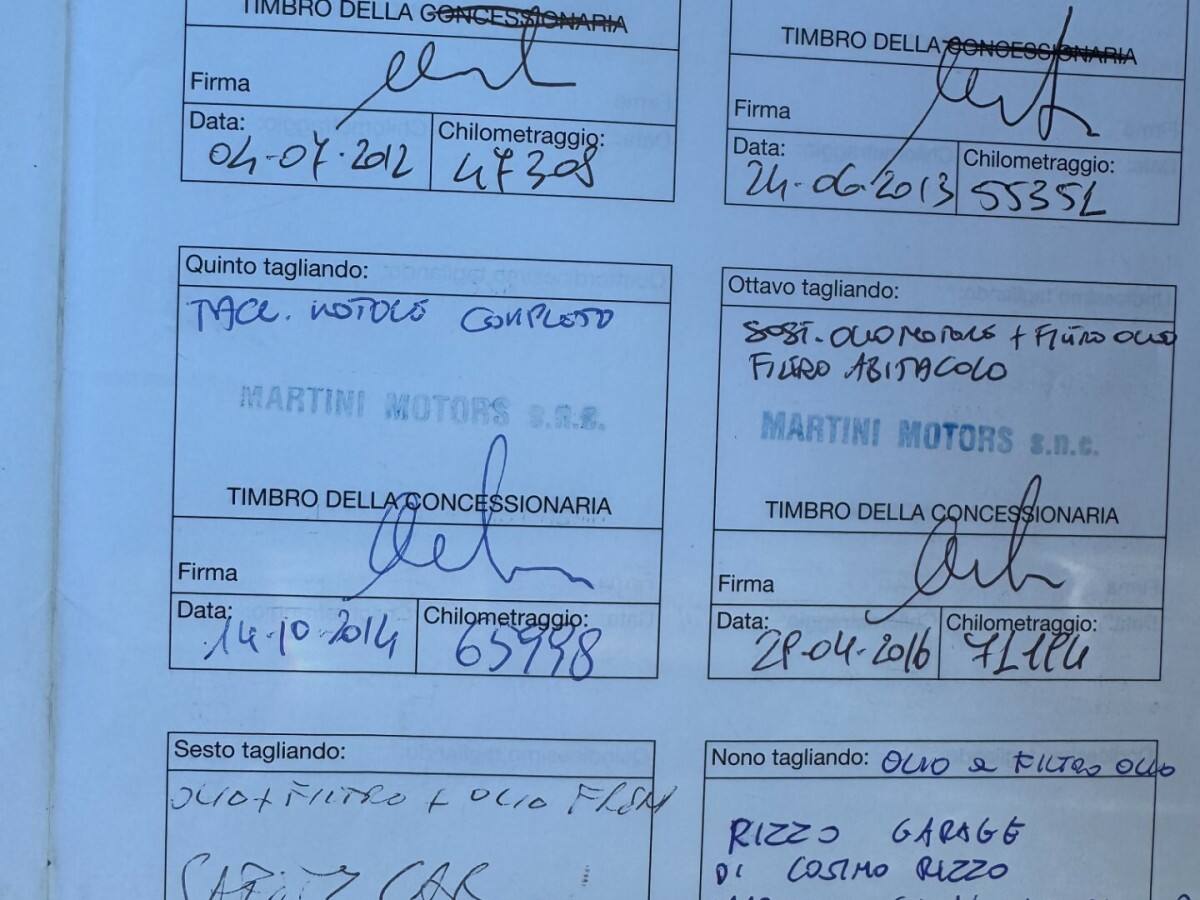 TIMBRO DELLA CONCESSIONARIA
Firma
Data:
04-07-2012
Chilometraggio:
47308
TIMBRO DELLA CONCESSIONARIA
Firma
Data:
24-06-2013
Chilometraggio:
55351
Quinto tagliando:
TAGL. MOTORE COMPLETO
MARTINI MOTORS s.n.c.
TIMBRO DELLA CONCESSIONARIA
Firma
Data:
14-10-2014
Chilometraggio:
65998
Ottavo tagliando:
SOST. OLIO MOTORE + FILTRO OLIO
FILTRO ABITACOLO
MARTINI MOTORS s.n.c.
TIMBRO DELLA CONCESSIONARIA
Firma
Data:
28-04-2016
Chilometraggio:
71184
Sesto tagliando:
OLIO + FILTRO + OLIO FRENI
CAR
Nono tagliando: OLIO E FILTRO OLIO
RIZZO GARAGE
DI COSIMO RIZZO